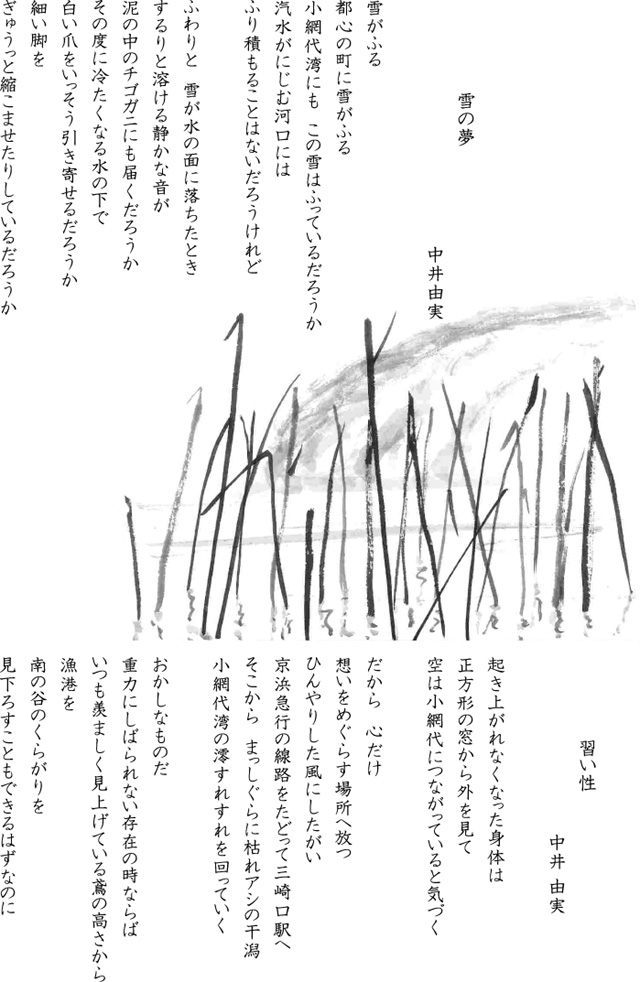 雪の夢
中井由実
雪がふる
都心の町に雪がふる
小網代湾にも この雪はふっているだろうか
汽水がにじむ河口には
ふり積もることはないだろうけれど
ふわりと 雪が水の面に落ちたとき
するりと溶ける静かな音が
泥の中のチゴガニにも届くだろうか
その度に冷たくなる水の下で
白い爪をいっそう引き寄せるだろうか
細い脚を
ぎゅうっと縮こませたりしているだろうか
習い性
中井 由実
起き上がれなくなった身体は
正方形の窓から外を見て
空は小網代につながっていると気づく
だから 心だけ
想いをめぐらす場所へ放つ
ひんやりした風にしたがい
京浜急行の線路をたどって三崎口駅へ
そこから まっしぐらに枯れアシの干潟
小網代湾の澪すれすれを回っていく
おかしなものだ
重力にしばられない存在の時ならば
いつも羨ましく見上げている鳶の高さから
漁港を
南の谷のくらがりを
見下ろすこともできるはずなのに